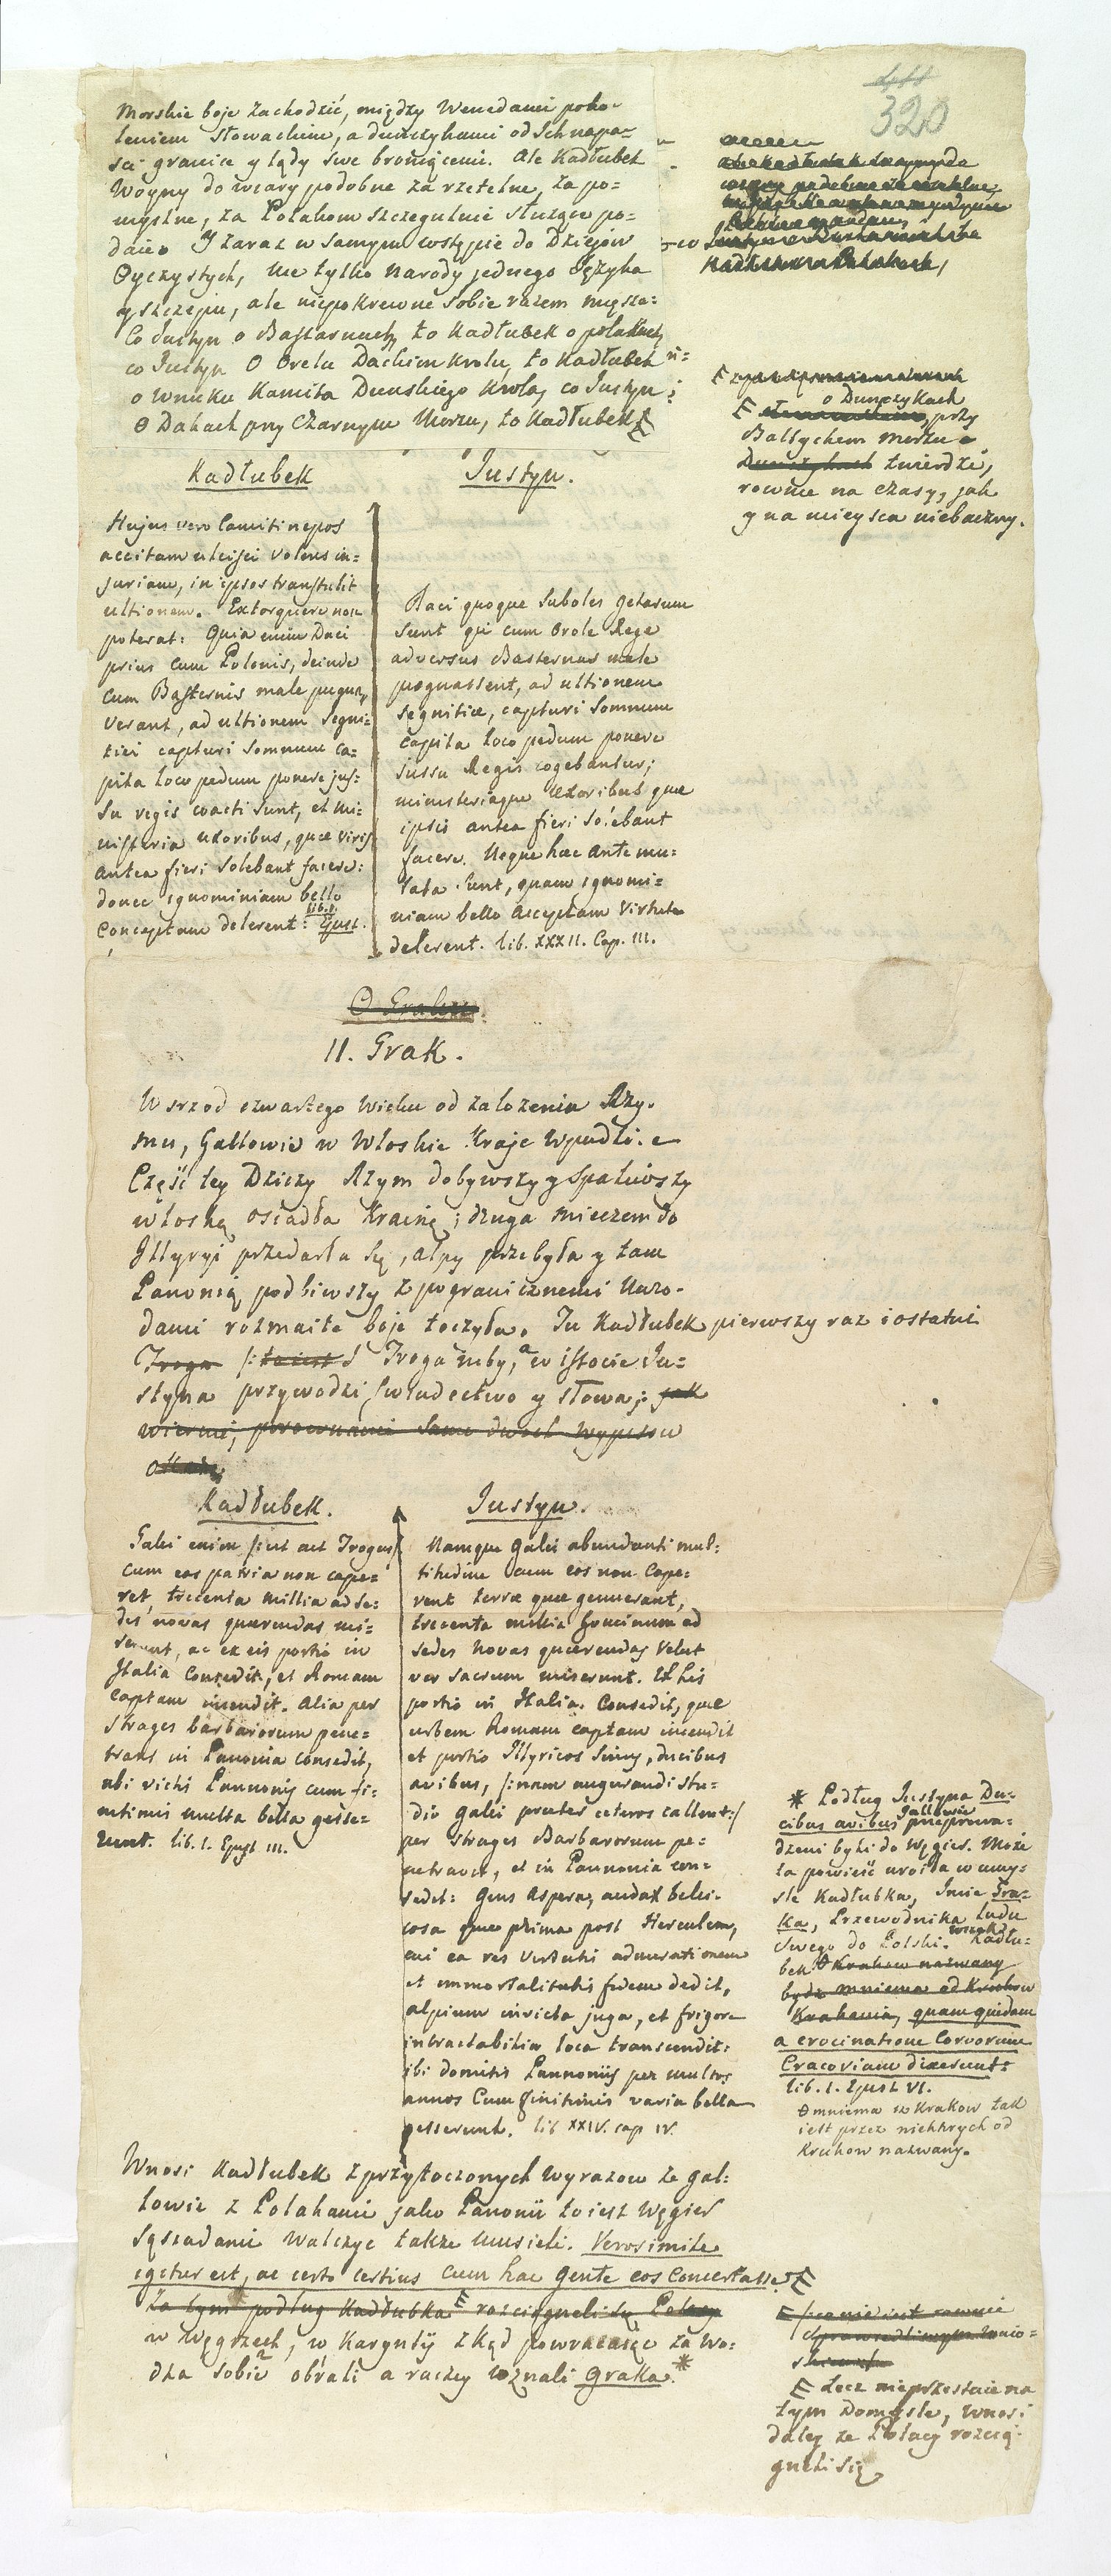 320
Morskie boje zachodzić, między Wenedami poko-
leniem słowackim, a duńczykami od Schnapa-
sci granice y lądy swe broniącemi. Ale Kadłubek
Woyny do wiary podobne za rzetelne, za po=
myslne, za Polakom szczegulnie służące po=
daie. I zaraz w samym wstępie do Dziejow
Oyczystych, nie tylko narody jednego Języka
y szczepu, ale niepokrewne sobie razem mięsza:
Co Justyn o Bastarnach, to Kadłubek o polakach,
co Justyn O Orelu Dackim Krolu, to Kadłubek
o wnuku Kamita Dunskiego Krola, co Justyn
O Dakach przy Czarnym Morzu, to Kadłubek E
o Dunczykach
E przy
Baltyckem morzu
Dunczykach twierdzi,
rownie na czasy, jak
y na mieysca niebaczny.
Kadłubek
Hujus vero Camiti nepos
accitam ulcisci volens in=
juriam, in ipsos transtulit
ultionem. Extorquere non
poterat: Quia enim Daci
prius cum Polonis, deinde
cum Basternis male pugna,
verant, ad ultionem segni=
tiei capturi somnum ca=
pita loco pedum ponere jus=
su regis coacti sunt, et mi=
nisteria uxoribus, quae viris
antea fieri solebant facere:
donec ignominiam bello
conceptam delerent: lib. 1. Epist.
Justyn.
Daci quoque suboles getarum
sunt qui cum Orole Rege
adversus Basternas male
pugnassent, ad ultionem
segnitiae, capturi somnum
capita loco pedum ponere
jussu Regis cogebantur;
ministeriaque uxoribus quae
ipsis antea fieri solebant
facere. Neque haec ante mu=
tata sunt, quam ignomi=
niam bello acceptam virtute
delerent. lib. XXXII. Cap. III.
O Graku.
II. Grak.
W srzod czwartego wieku od założenia Rzy.
mu, Gallowie w Włoskie Kraje wpadli.
Część tey Dziczy Rzym dobywszy y spaliwszy
włoską osiadła Krainę; druga mieczem do
Illyryi przedarła się, alpy przebyła y tam
Panonią podbiwszy z pogranicznemi Naro-
dami rozmaite boje toczyła. Tu Kadłubek pierwszy raz i ostatni
Troga /: to iest / Troga niby, a w istocie Ju=
styna przywodzi swiadectwo y słowa; jak
wiernie, porownanie same dwoch wypisow
okaże
Kadłubek.
Galli enim /: ut aet Trogus/
cum eos patria non cape=
ret, trecenta millia ad se=
des novas quaerendas mi=
serunt, ac ex eis portio in
Italia consedit, et Romam
captam incendit. Alia per
strages barbarorum pene=
trans in Panonia consedit,
ubi victis Pannonijs cum fi=
nitimis multa bella gesse=
runt. lib. I. Epist III.
Justyn.
Namque galli abundanti mul=
titudine cum eos non cape=
rent terrae quae genuerant,
trecenta millia hominum ad
sedes novas quaerendas velut
ver sacrum miserunt. Ex his
portio in Italia consedit, quae
urbem Romam captam incendit
et portio Illyricos sinus, ducibus
avibus, /: nam augurandi stu=
dio galli praeter ceteros callent :/
per strages Barbarorum pe=
netravit, et in Pannonia con=
sedit: Gens aspera, audax belli=
cosa quae prima post Herculem,
cui ea res virtutis admirationem
et immortalitatis fidem dedit,
alpium invicta juga, et frigore
intractabilia loca transcendit:
ibi domitis Pannonijs per multos
annos cum finitimis varia bella
gesserunt. lib XXIV. cap IV.
* Podług Justyna Du=
cibus avibus Gallowie przeprowa=
dzeni byli do Węgier. Może
ta powieść uroiła w umy=
sle Kadłubka, Imie Gra=
ka, Przewodnika ludu
swego do Polski. wszak Kadłu=
bek θ Krakow nazwany
bydz mniema od Krukow
Krakania, quam quidam
a crocinatione Corvorum
Cracoviam dixerunt:
lib. I. Epist VI.
θ mniema ze Krakow tak
iest przez niektorych od
Krukow nazwany.
Wnosi Kadłubek z przytoczonych wyrazow ze gal=
lowie z Polakami jako Panonii to iest Węgier
sąsiadami walczyc także musieli. Verosimile
igitur est, ac certo certius cum hac gente eos concertasse E
Za tym podług Kadłubka E rozciągneli się Polacy
w Węgrzech, w Karyntij zkąd powracaięc za wo=
dza sobie obrali a raczey uznali Graka.*
E Lecz nieprzestaie na
tym Domysle, wnosi
daley ze Polacy rozcią=
gneli się